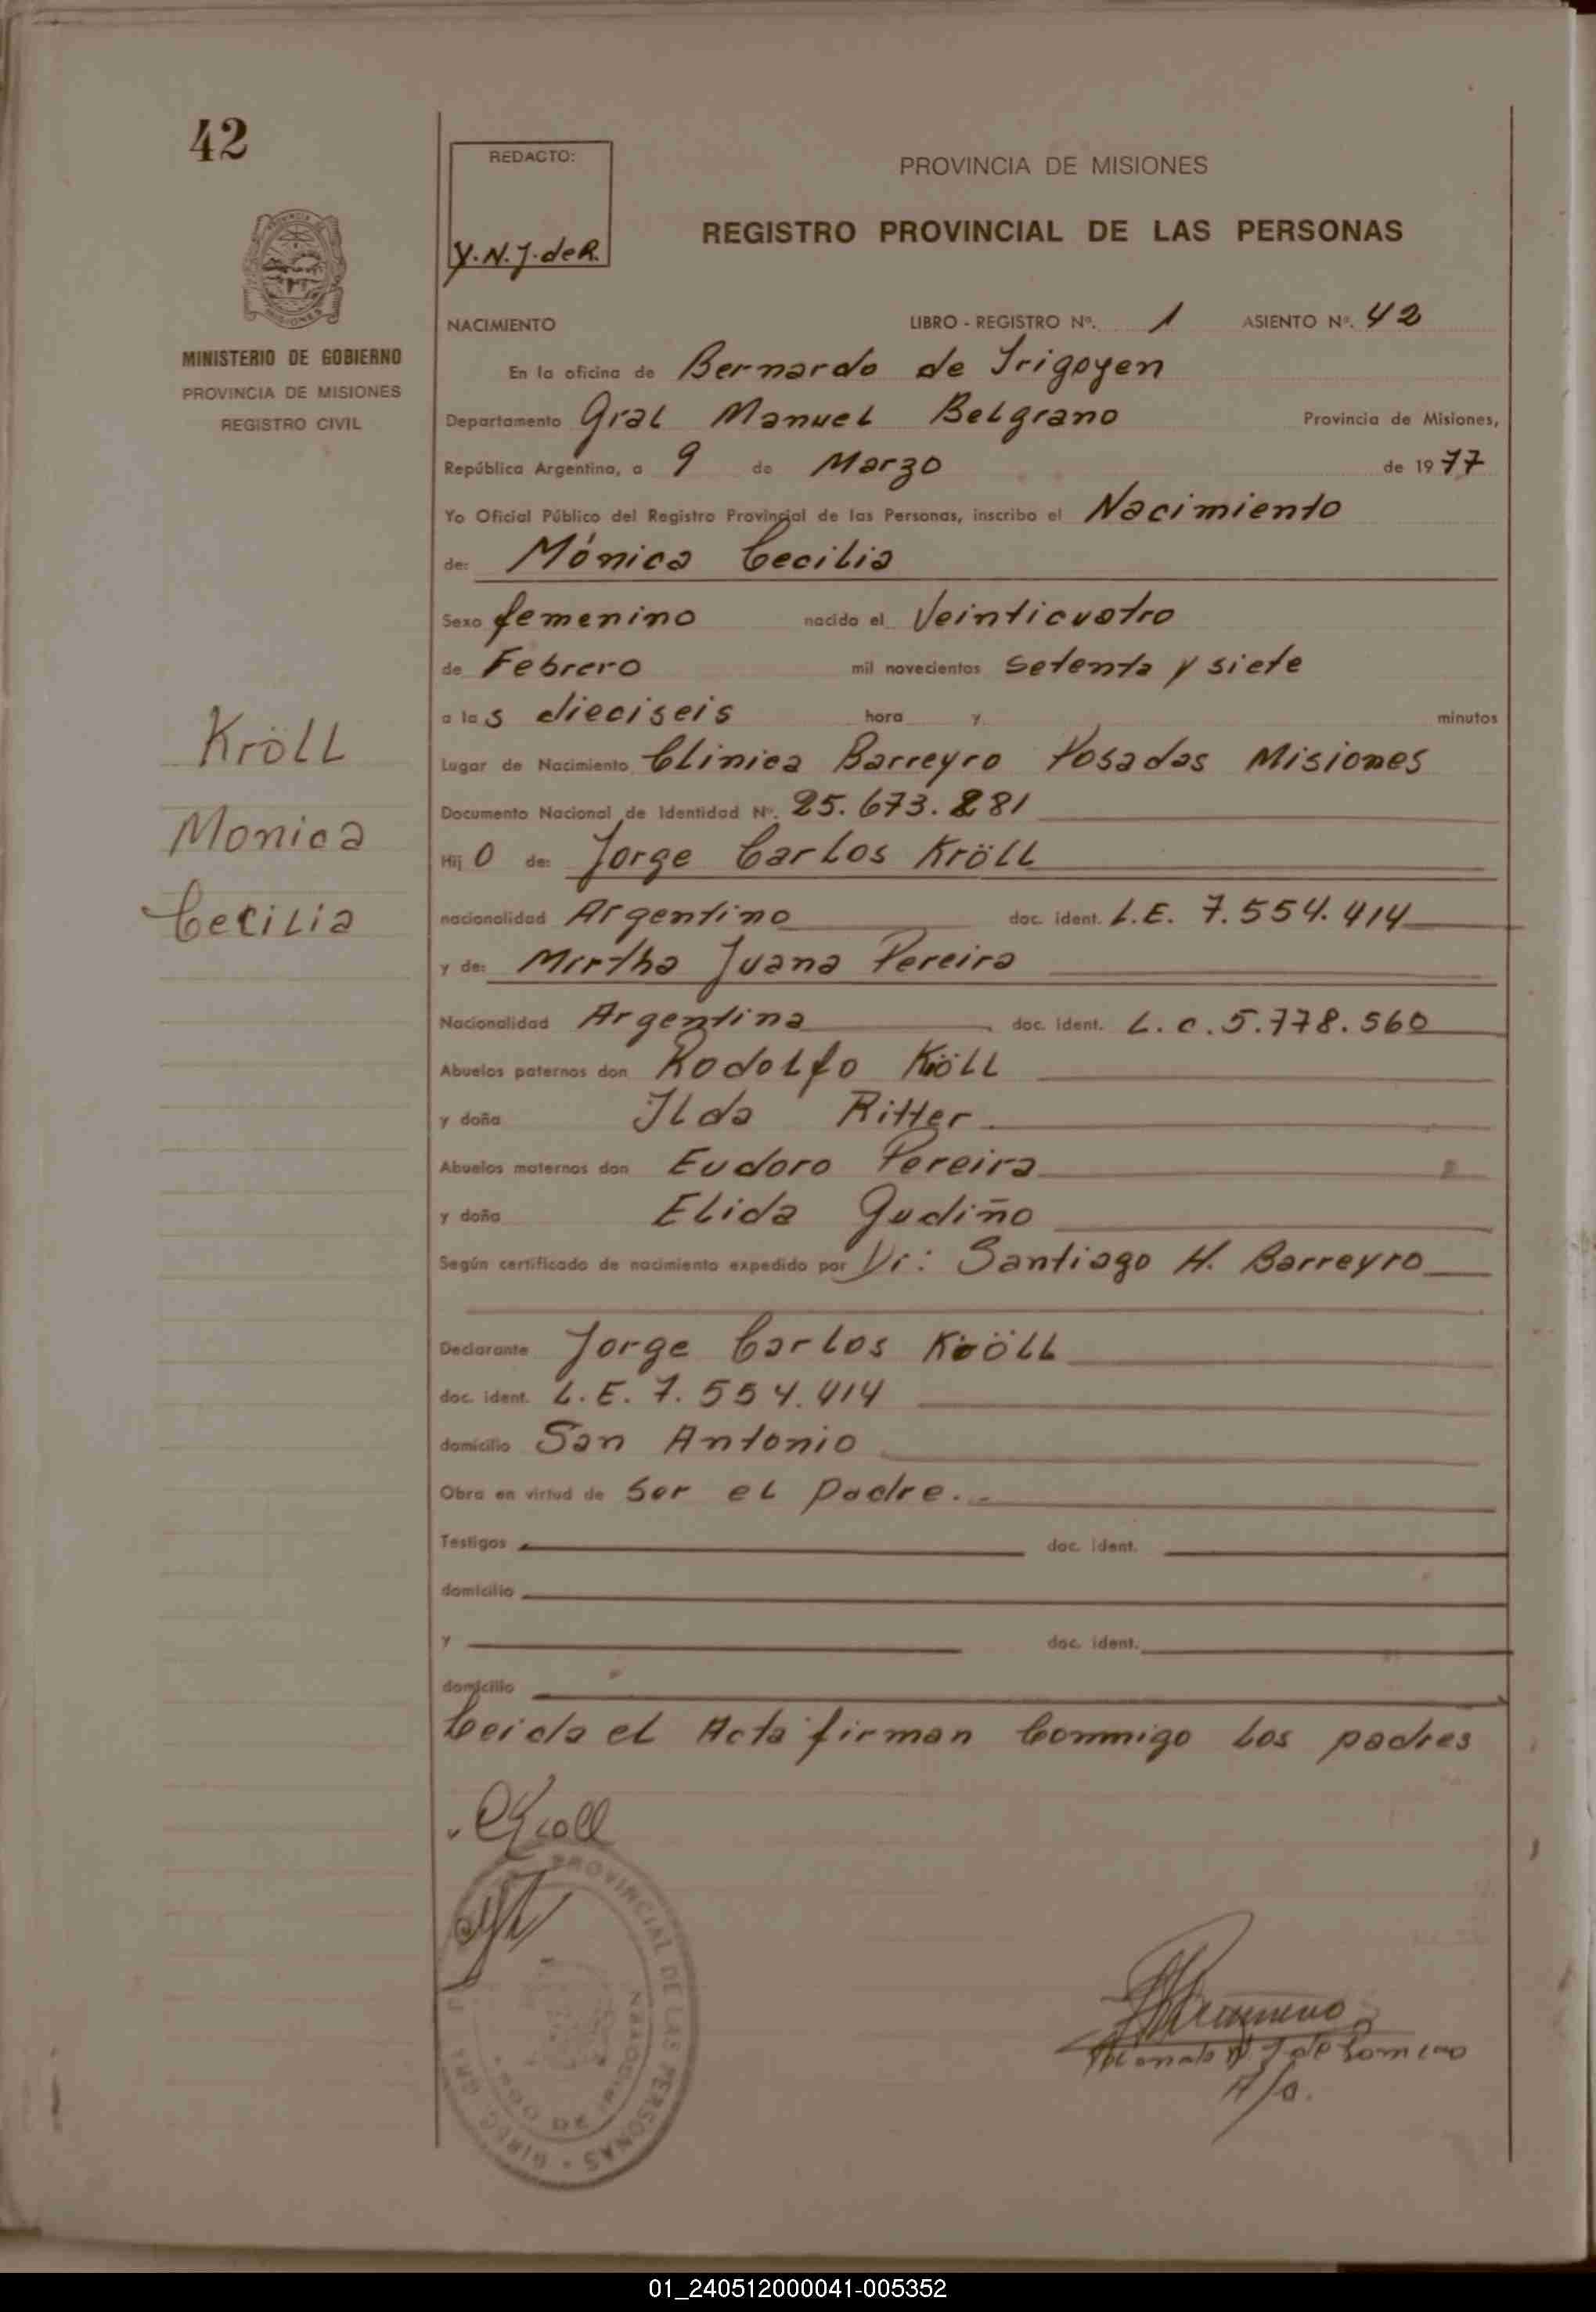 42
REDACTO:
Y.N.J. de R.
PROVINCIA DE MISIONES
REGISTRO PROVINCIAL DE LAS PERSONAS
MINISTERIO DE GOBIERNO
PROVINCIA DE MISIONES
REGISTRO CIVIL
NACIMIENTO LIBRO - REGISTRO Nº. 1 ASIENTO Nº. 42
En la oficina de Bernardo de Irigoyen
Departamento Gral Manuel Belgrano Provincia de Misiones,
República Argentina, a 9 de Marzo de 1977
Yo Oficial Público del Registro Provincial de las Personas, inscribo el Nacimiento
de: Mónica Cecilia
Sexo femenino nacido el Veinticuatro
de Febrero mil novecientos setenta y siete
a las dieciseis hora y minutos
Lugar de Nacimiento Clinica Barreyro Posadas Misiones
Documento Nacional de Identidad Nº. 25.673.281
Hijo de: Jorge Carlos Kröll
nacionalidad Argentino doc. ident. L.E. 7.554.414
y de: Mirtha Juana Pereira
Nacionalidad Argentina doc. ident. L.C. 5.778.560
Abuelos paternos don Rodolfo Kröll
y doña Ilda Ritter
Abuelos maternos don Eudoro Pereira
y doña Elida Gudiño
Según certificado de nacimiento expedido por Dr: Santiago H. Barreyro
Declarante Jorge Carlos Kröll
doc. ident. L.E. 7.554.414
domicilio San Antonio
Obra en virtud de Ser el padre.-
Testigos doc. ident.
domicilio
y doc. ident.
domicilio
Leida el Acta firman Conmigo los padres
Kröll
Monica
Cecilia
Kroll
PROVINCIAL DE LAS PERSONAS
N. J. de Romero
A/c.
01_240512000041-005352